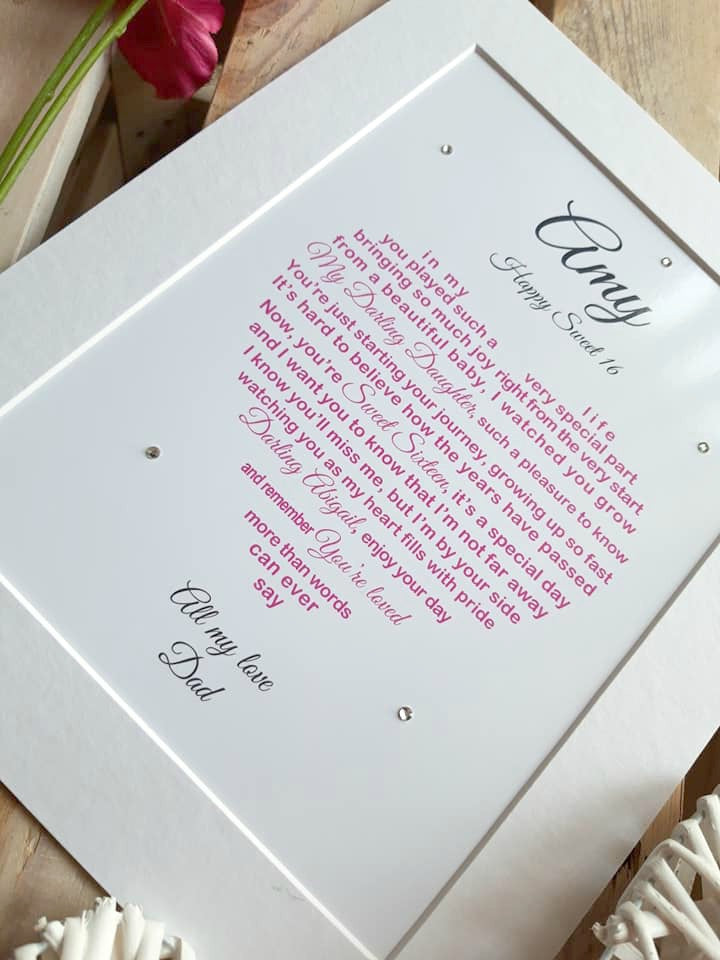 Amy
Happy Sweet 16
in my life
you played such a very special part
bringing so much joy right from the very start
from a beautiful baby, I watched you grow
My Darling Daughter, such a pleasure to know
You're just starting your journey, growing up so fast
It's hard to believe how the years have passed
Now, you're Sweet Sixteen, it's a special day
and I want you to know that I'm not far away
I know you'll miss me, but I'm by your side
watching you as my heart fills with pride
Darling Abigail, enjoy your day
and remember You're loved
more than words
can ever
say
All my love
Dad